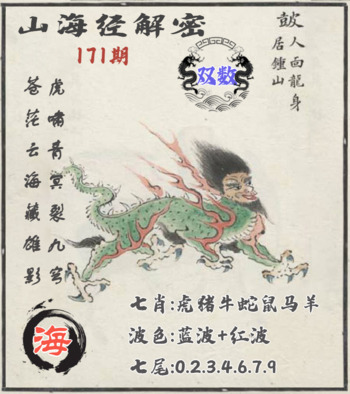 山海经解密
171期
双数
鼓
人面龍身
居鍾山
虎啸青冥裂九穹
苍茫云海藏雄影
海
七肖:虎猪牛蛇鼠马羊
波色:蓝波+红波
七尾:0.2.3.4.6.7.9